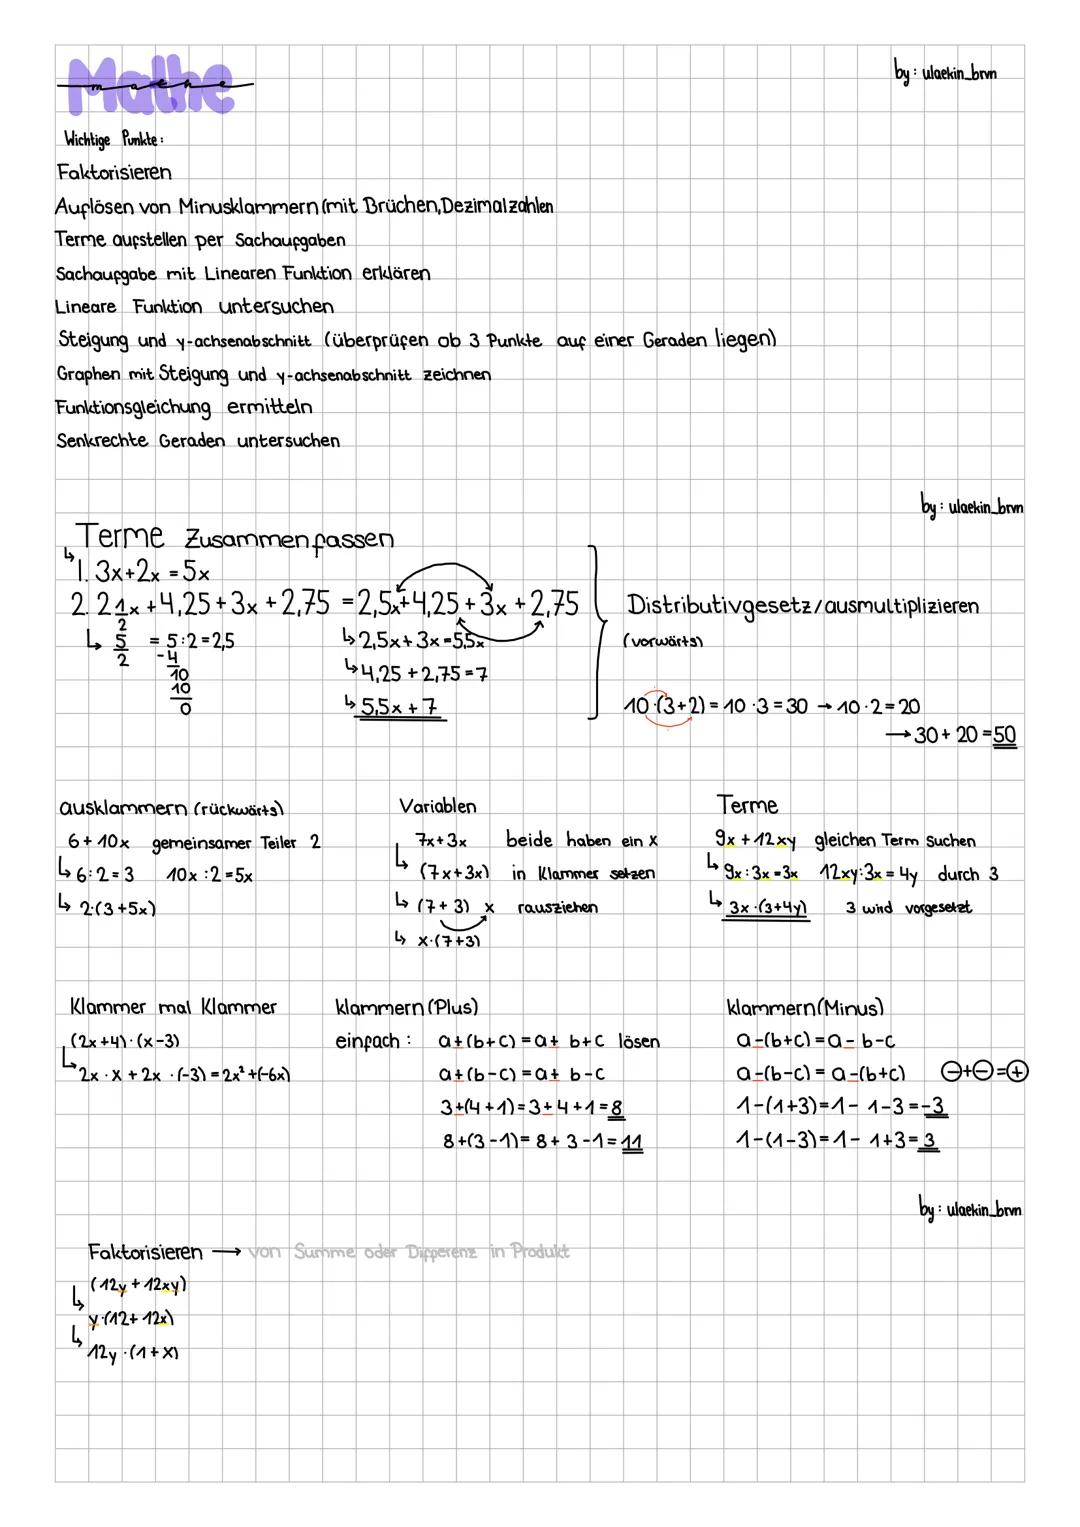 Mathe
mathe
by: ulaekin_brvn
Wichtige Punkte:
Faktorisieren
Auflösen von Minusklammern (mit Brüchen, Dezimalzahlen
Terme aufstellen per Sachaufgaben
Sachaufgabe mit Linearen Funktion erklären
Lineare Funktion untersuchen
Steigung und y-achsenabschnitt (überprüfen ob 3 Punkte auf einer Geraden liegen)
Graphen mit Steigung und y-achsenabschnitt zeichnen
Funktionsgleichung ermitteln
Senkrechte Geraden untersuchen
by: ulaekin_brvn
Terme zusammenfassen
↳ 1. 3x+2x = 5x
2. 2 1/2 x + 4,25 + 3x + 2,75 = 2,5x + 4,25 + 3x + 2,75
↳ 5/2 = 5:2 = 2,5
-4
10
10
0
↳ 2,5x + 3x = 5,5x
↳ 4,25 + 2,75 = 7
↳ 5,5x + 7
Distributivgesetz/ausmultiplizieren
(vorwärts)
10·(3+2) = 10·3 = 30 → 10·2 = 20
→ 30 + 20 = 50
ausklammern (rückwärts)
6 + 10x gemeinsamer Teiler 2
↳ 6:2 = 3 10x:2 = 5x
↳ 2·(3+5x)
Variablen
7x+3x beide haben ein x
↳ (7x+3x) in Klammer setzen
↳ (7+3) x rausziehen
↳ x·(7+3)
Terme
9x + 12xy gleichen Term suchen
↳ 9x:3x = 3x 12xy:3x = 4y durch 3
↳ 3x·(3+4y) 3 wird vorgesetzt
Klammer mal Klammer
(2x+4)·(x-3)
↳ 2x·x + 2x·(-3) = 2x² + (-6x)
klammern (Plus)
einfach: a+(b+c) = a+ b+c lösen
a+(b-c) = a+ b-c
3+(4+1) = 3+4+1 = 8
8+(3-1) = 8+3-1 = 11
klammern (Minus)
a-(b+c) = a- b-c
a-(b-c) = a-(b+c) ⊖+⊖=⊕
1-(1+3) = 1- 1-3 = -3
1-(1-3) = 1- 1+3 = 3
by: ulaekin_brvn
Faktorisieren → von Summe oder Differenz in Produkt
(12y + 12xy)
↳ y·(12+12x)
↳ 12y·(1+x)